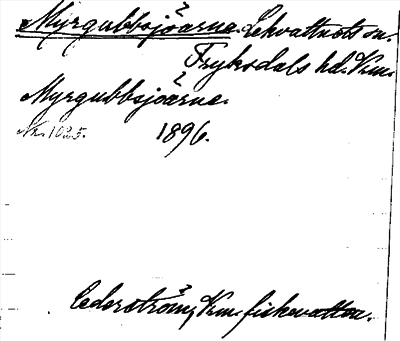 Myrgubbsjöarna. Lekvattnets sn.
Fryksdals hd. Vrm.
Myrgubbsjöarna.
Nr. 1025. 1896.
Cederström, Vrm. fiskevatten.